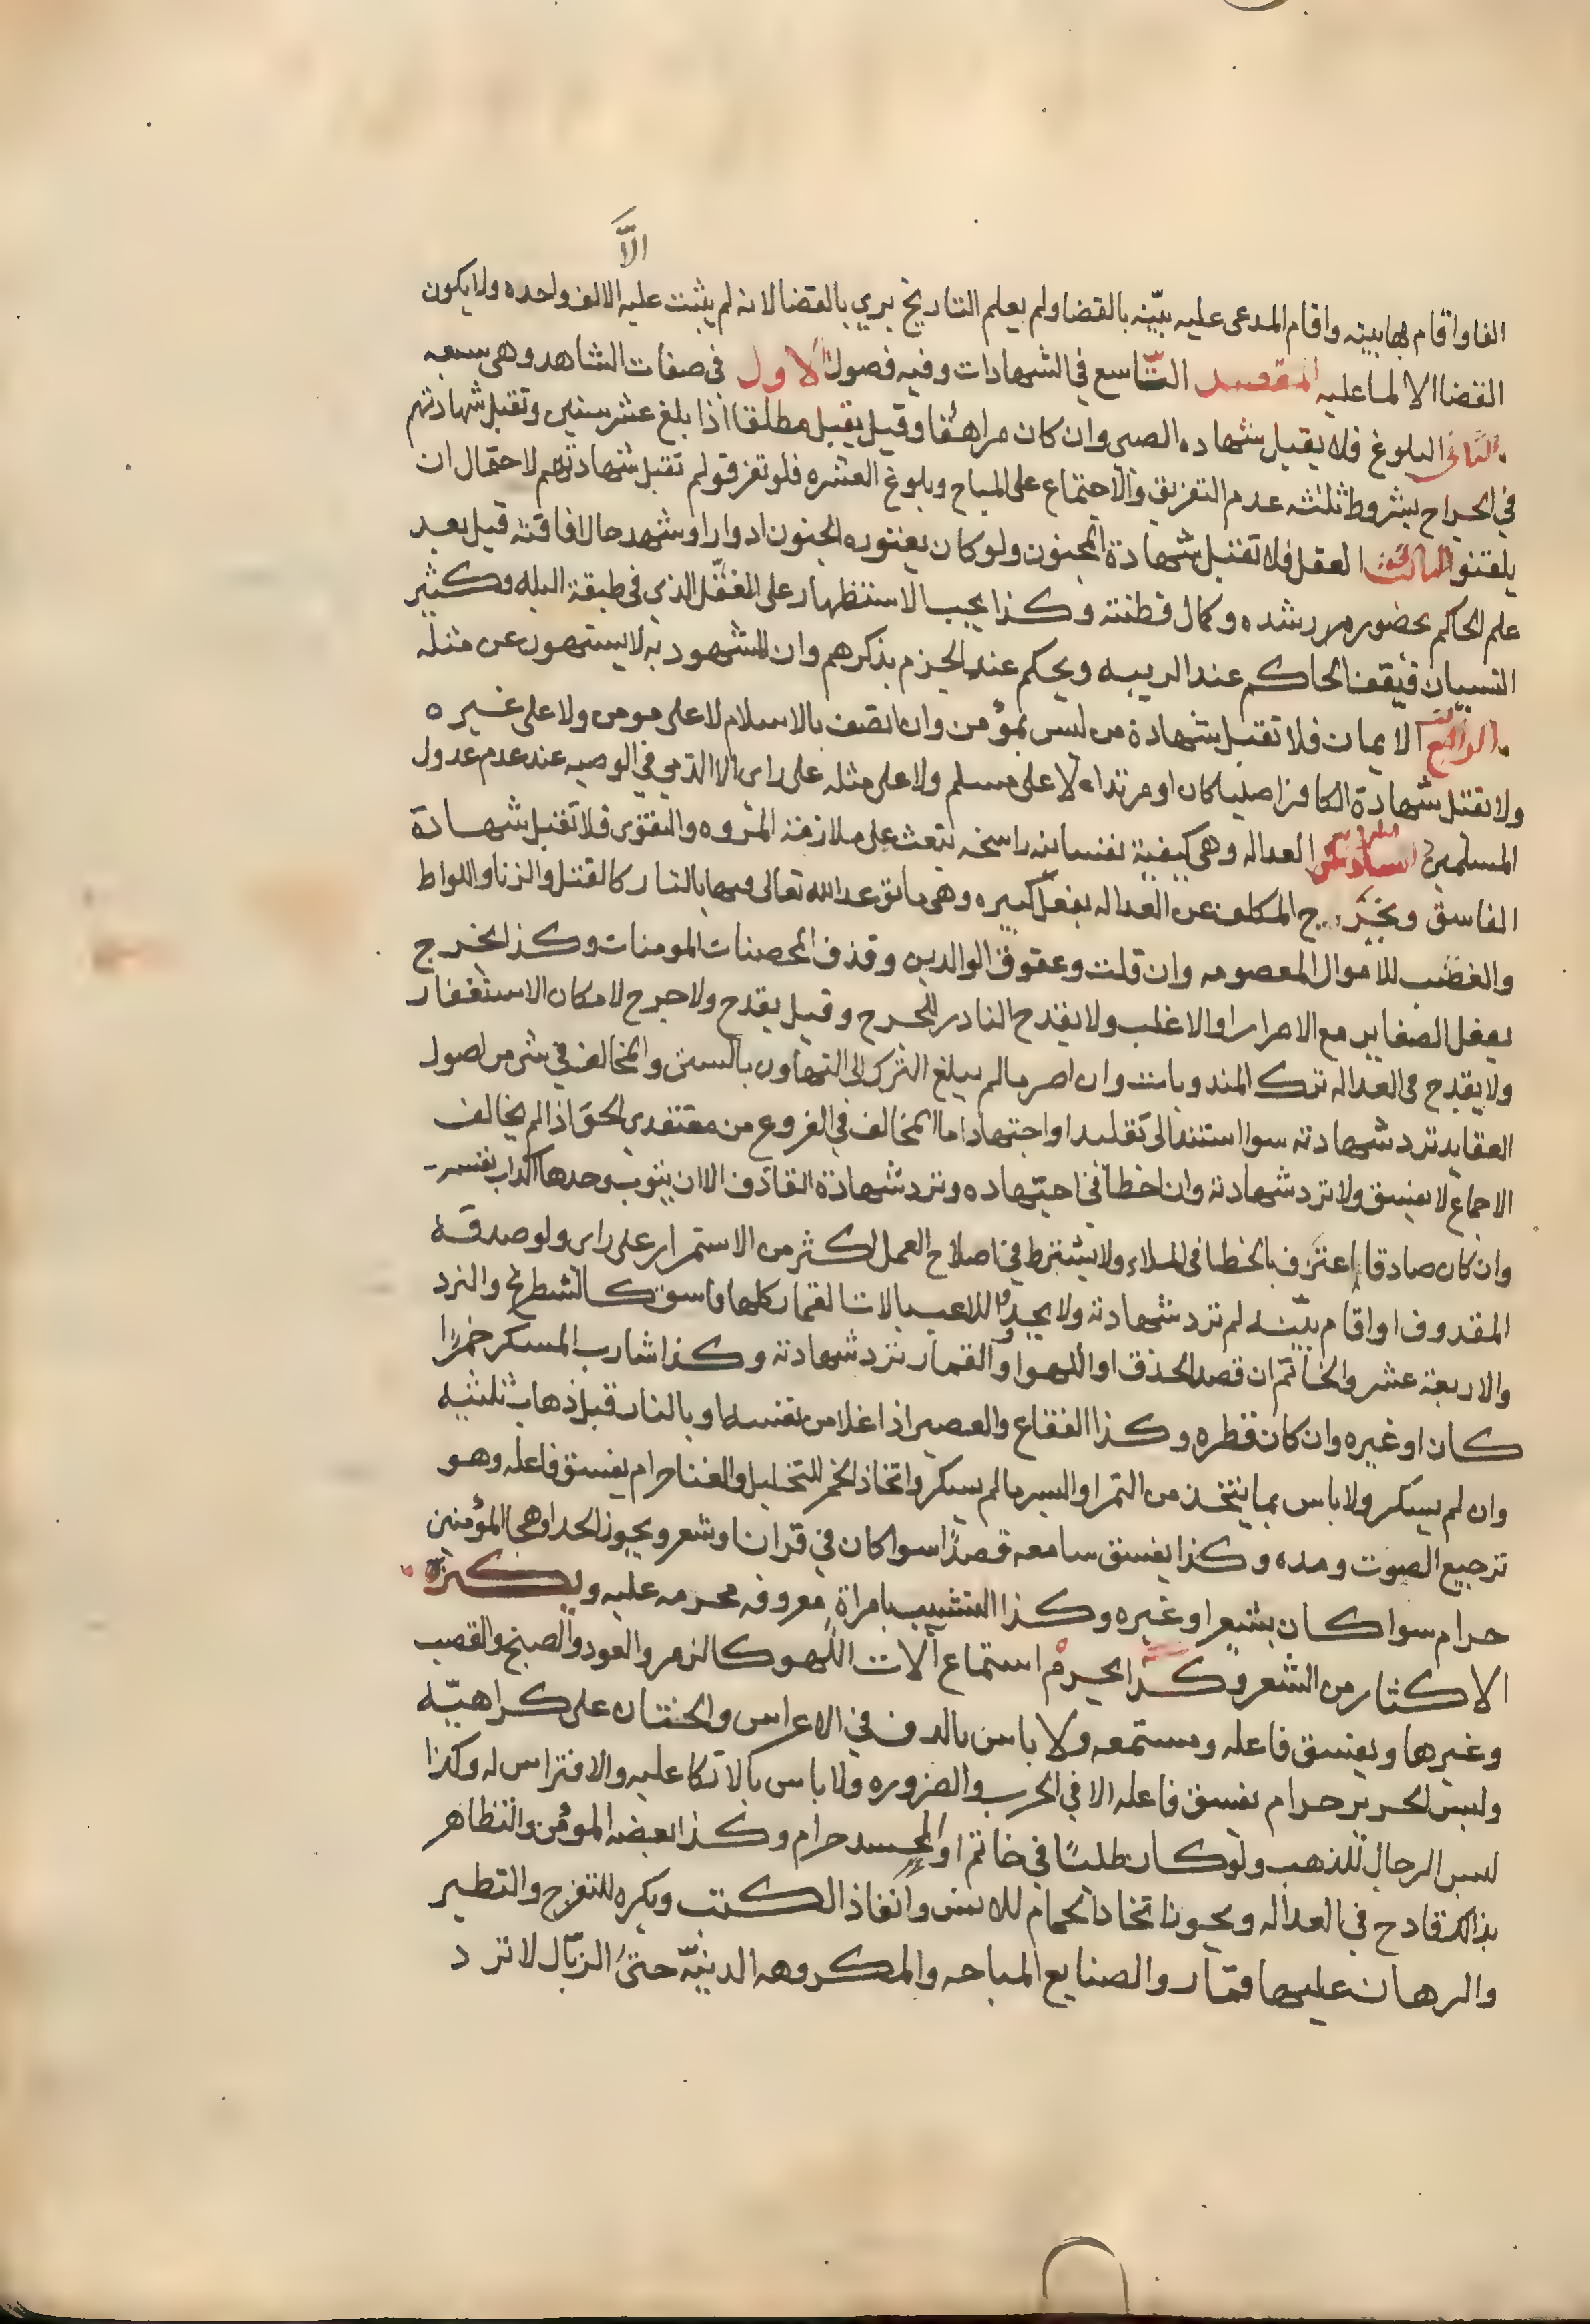 الَّا
الفا واقام بها بينه واقام المدعى عليه ببّينه بالقضا ولم يعلم التاريخ بري بالقضا لانه لم يثبت عليه الا الف واحده ولا يكون
القضا الا لما عليه المقصد التاسع في الشهادات وفيه فصول الاول في صفات الشاهد وهي سبعه
البلوغ فلا يقبل شهاده الصبى وان كان مراهقا وقيل يقبل مطلقا اذا بلغ عشر سنين وتقبل شهادتهم
في الجراح بشروط ثلثه عدم التفريق والاجتماع على المباح وبلوغ العشره فلو تفرقو لم تقبل شهادتهم لاحتمال ان
يلقنوا العقل فلا تقبل شهادة المجنون ولو كان يعتوره الجنون ادوارا وشهد حال افاقته قبل بعد
علم الحاكم بحضور رشده وكمال فطنته وكذا يجب الاستظهار على المغفّل الذي في طبقة البله وكثير
النسيان فيقف الحاكم عند الريبه ويحكم عند الجزم بذكرهم وان المشهود به لا يسهون عن مثله
الايمان فلا تقبل شهادة من ليس بمؤمن وان اتصف بالاسلام لا على مومن ولا على غيره
ولا تقبل شهادة الكافر اصليا كان او مرتدا لا على مسلم ولا على مثله على راى الا الذمي في الوصيه عند عدم عدول
المسلمين العداله وهى كيفية نفسانيه راسخه تبعث على ملازمة المروه والتقوى فلا تقبل شهادة
الفاسق ويخرج المكلف عن العداله بفعل كبيره وهى ما توعد الله تعالى فيها بالنار كالقتل والزنا واللواط
والغصب للاموال المعصومه وان قلت وعقوق الوالدين وقذف المحصنات المومنات وكذا يخرج
بفعل الصغاير مع الاصرار او الاغلب ولا يقدح النادر للحرج وقيل يقدح ولا حرج لامكان الاستغفار
ولا يقدح فى العداله ترك المندوبات وان اصر ما لم يبلغ الترك الى التهاون بالسنن والمخالف في شى من اصول
العقايد ترد شهادته سوا استند الى تقليد او اجتهاد اما المخالف في الفروع من معتقدى الحق اذا لم يخالف
الاجماع لا يفسق ولا ترد شهادته وان اخطا في اجتهاده وترد شهادة القاذف الا ان يتوب وحدها اكذاب نفسه
وان كان صادقا اعترف بالخطا فى الملاء ولا يشترط في اصلاح العمل اكثر من الاستمرار على راى ولو صدقه
المقذوف او اقام بيّنه لم ترد شهادته ولا يحد واللاعب بالات القمار كلها فاسق كالشطرنج والنرد
والاربعة عشر والخاتم ان قصد الحذق او اللهو او القمار ترد شهادته وكذا شارب المسكر خمرًا
كان او غيره وان كان قطره وكذا الفقاع والعصير اذا غلا من نفسه او بالنار قبل ذهاب ثلثيه
وان لم يسكر ولا باس بما يتخذ من التمر او البسر ما لم يسكر واتخاذ الخمر للتخليل والغنا حرام يفسق فاعله وهو
ترجيع الصوت ومده وكذا يفسق سامعه قصدًا سوا كان في قران او شعر ويجوز الحدا وهجا المؤمنين
حرام سوا كان بشعر او غيره وكذا التشبيب بامراة معروفه محرمه عليه ويكره
الاكثار من الشعر وكذا يحرم استماع آلات اللهو كالزمر والعود والصنج والقصب
وغيرها ويفسق فاعله ومستمعه ولا باس بالدف في الاعراس والختان على كراهيّه
ولبس الحرير حرام يفسق فاعله الا في الحرب والضروره ولا باس بالاتكا عليه والافتراس له وكذا
لبس الرجال للذهب ولو كان طليًا في خاتم او الحسد حرام وكذا بغضه المؤمن والتظاهر
بذلك قادح في العداله ويجوز اتخاذ الحمام للانس وانفاذ الكتب ويكره للتفرج والتطير
والرهان عليها قمار والصنايع المباحه والمكروهه الدنيّه حتى الزبّال لا ترد